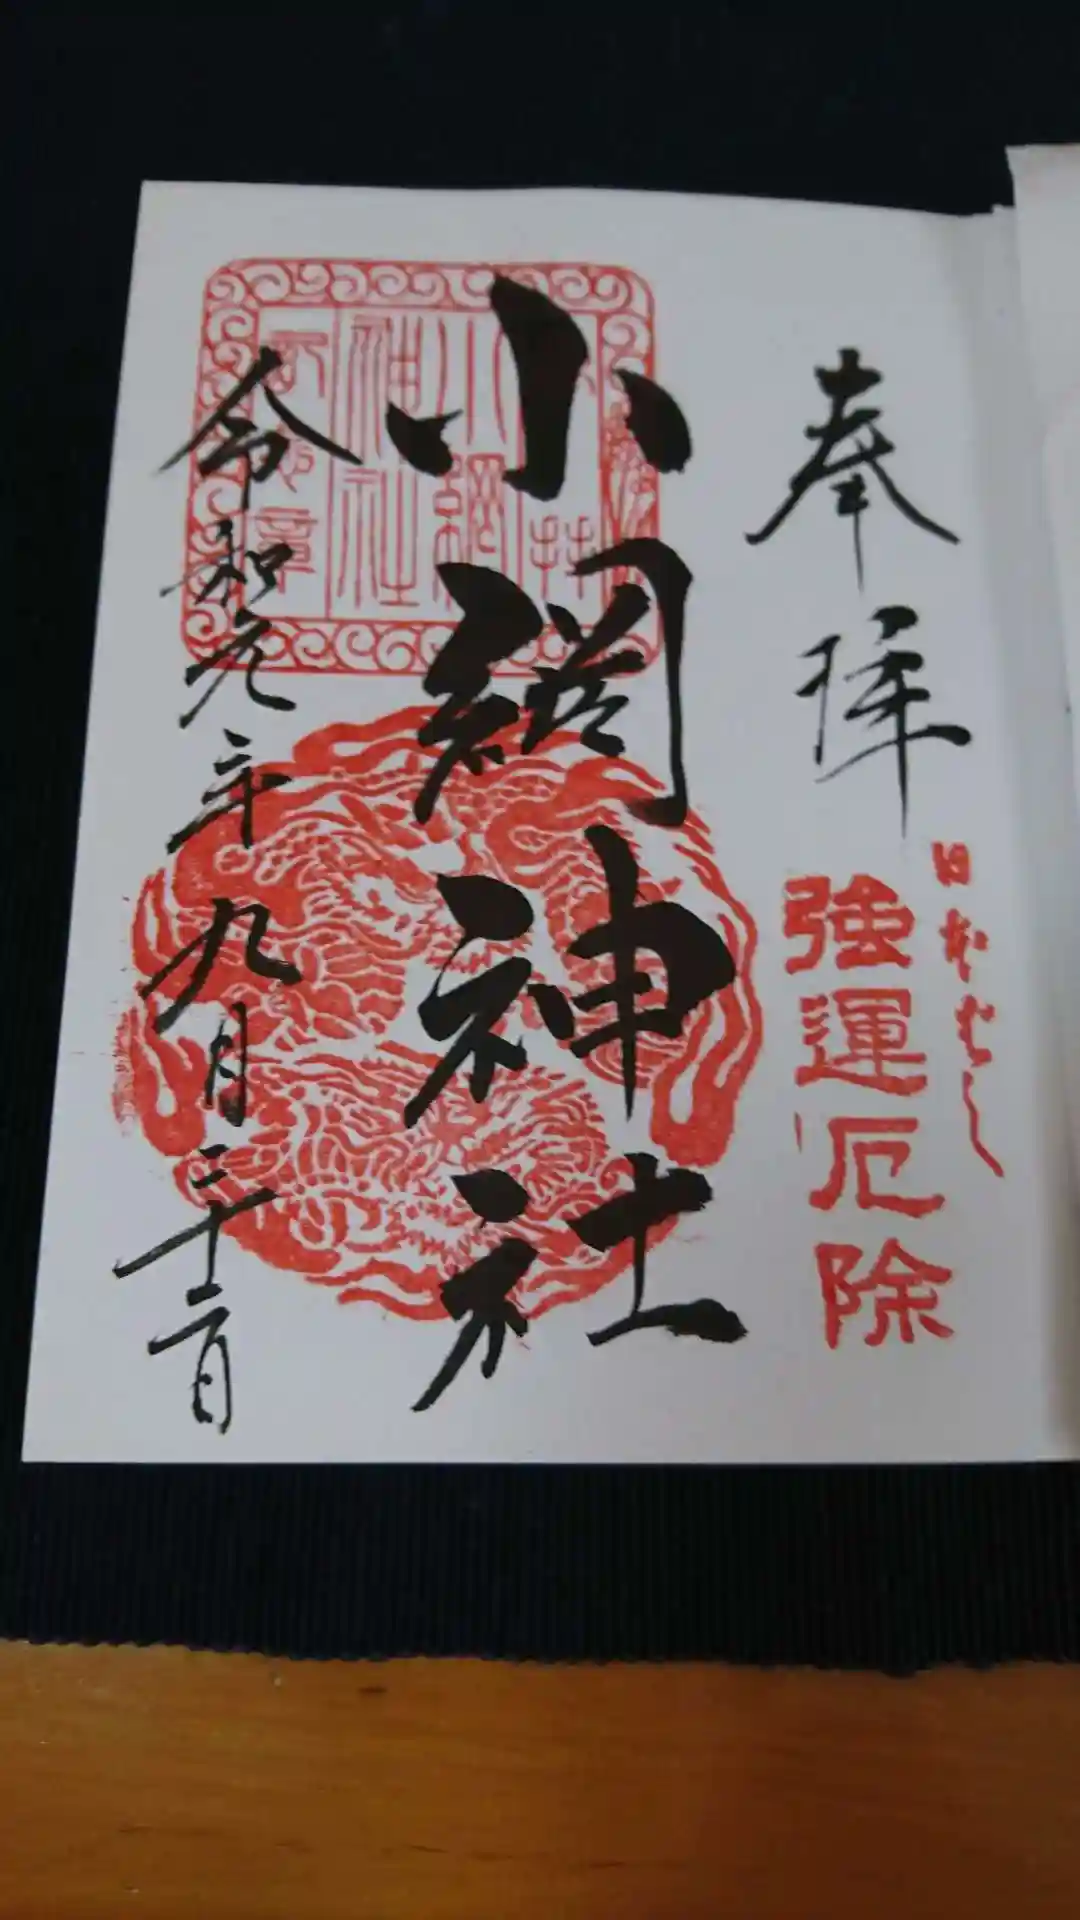 奉拝
日本ばし
強運厄除
小網神社
小網神社
令和元年九月三十日